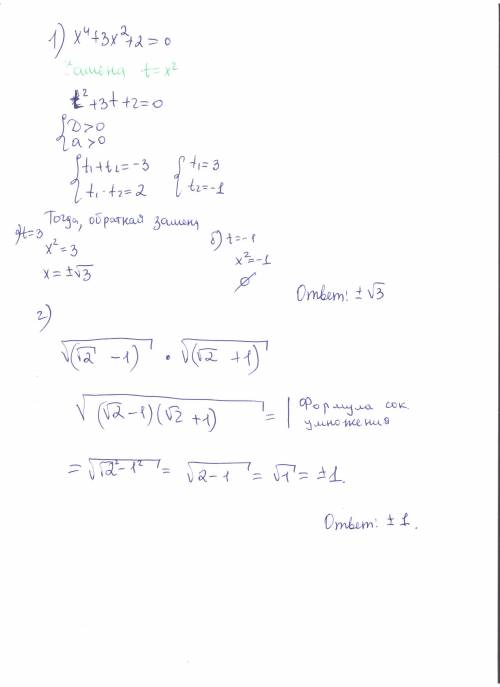 1) x⁴+3x²+2=0
Замена t=x²
t²+3t+2=0
{ D>0
a>0
{ t₁+t₂=-3 { t₁=3
t₁·t₂=2 t₂=-1
Тогда, обратная замена
а) t=3 б) t=-1
x²=3 x²=-1
x=±√3 ∅
Ответ: ±√3
2)
√(√2 -1) · √(√2 +1)
√(√2-1)(√2+1) = | Формула сок.
умножения
= √√2²-1² = √2-1 = √1 = ±1.
Ответ: ±1.